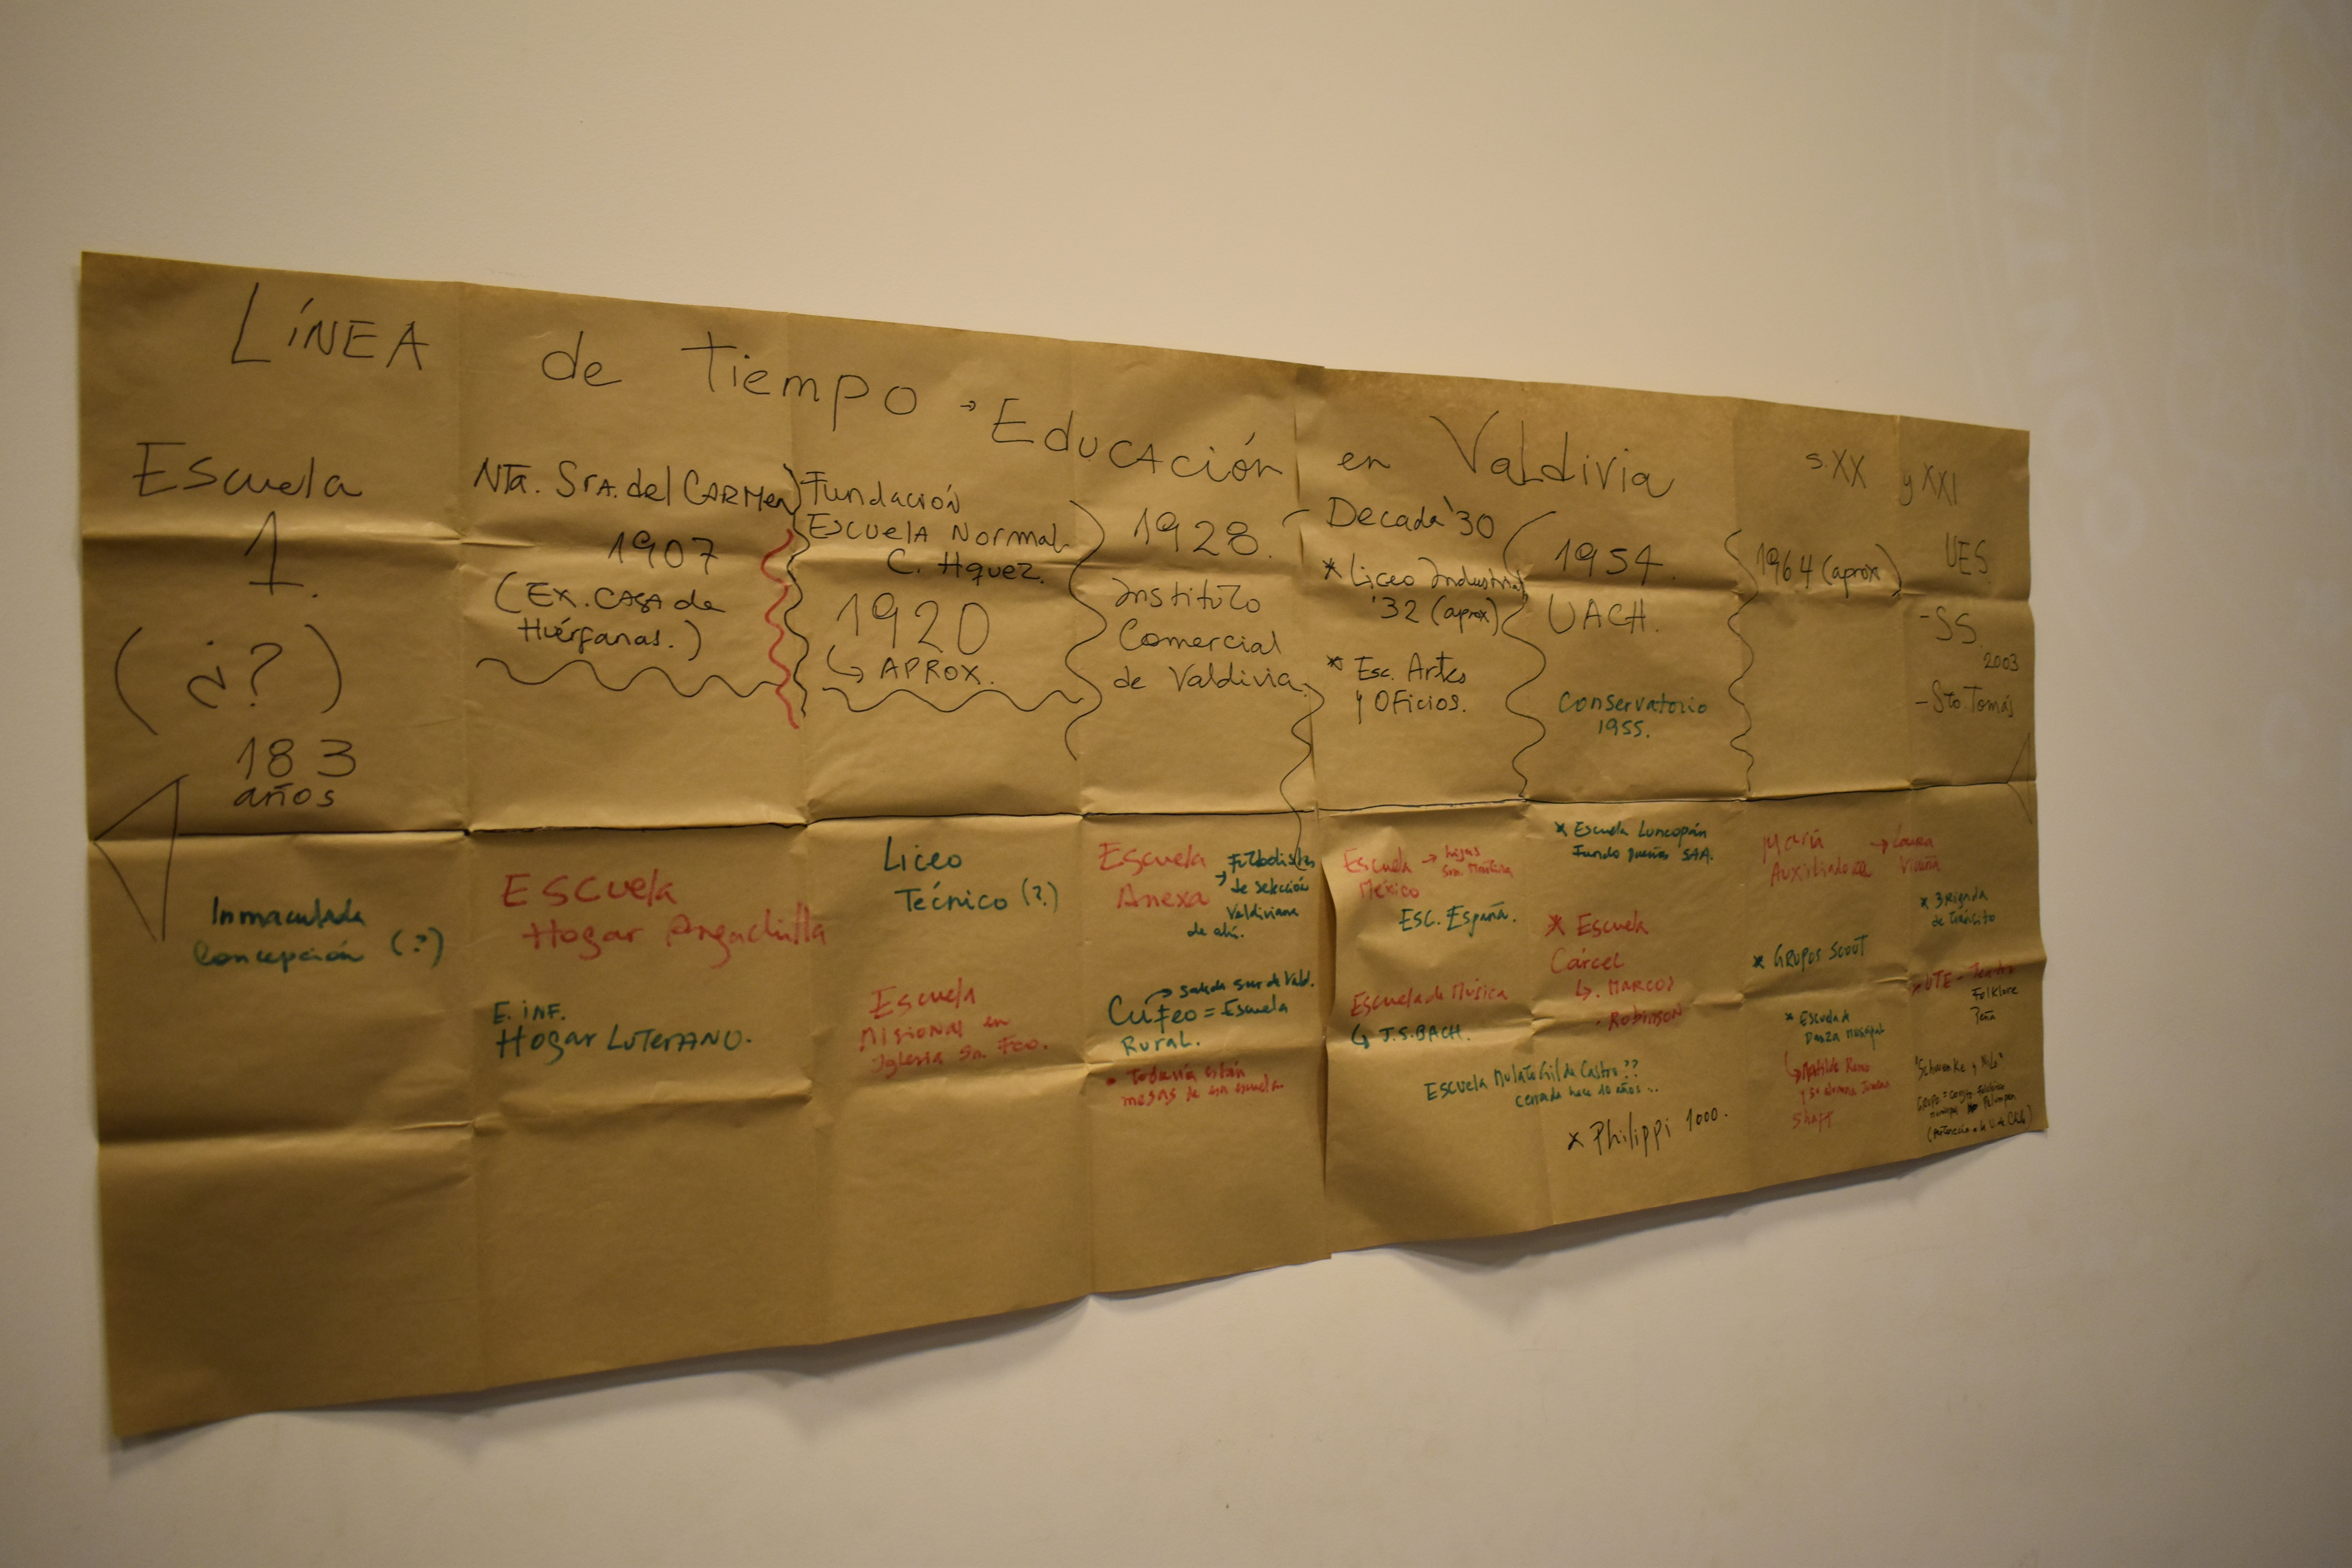 LÍNEA de Tiempo → EDUCACIÓN en Valdivia s.XX y XXI
Escuela
1.
(¿?)
183
años
NTA. SrA. del CARMEN
1907
(EX. CASA de
Huérfanas.)
Fundación
ESCUELA NORMAL
C. Hquez.
1920
↳ APROX.
1928.
Instituto
Comercial
de Valdivia.
Decada '30
* Liceo Industrial
'32 (aprox)
* Esc. Artes
y OFicios.
1954.
UACH.
Conservatorio
1955.
1964 (aprox)
UES
-SS.
2003
-Sto. Tomás
Inmaculada
Concepción (?)
ESCUELA
Hogar Angachilla
E. INF.
Hogar LUTERANO.
Liceo
Técnico (?)
Escuela
Misional en
Iglesia Sn. Fco.
Escuela
Anexa
→ Futbolistas
de selección
Valdiviana
de ahí.
→ salida sur de Vald.
Cufeo = Escuela
Rural.
• Todavía están
mesas de esa escuela
Escuela →
México
ESC. España.
Escuela de Música
↳ J.S. BACH.
ESCUELA Mulato Gil de Castro??
cerrada hace 10 años...
* Escuela Loncopán
Fundo
* Escuela
Cárcel
↳. MARCOS
. Robinson
* Philippi 1000.
María
Auxiliadora
→ Laura
Vicuña
* GRUPOS SCOUT
* Escuela de
Danza Municipal
↳ Matilde Romo
y su alumna
* Brigada
de Tránsito
* UTE - Teatro
Folklore
Peña
"Schwenke y Nilo"